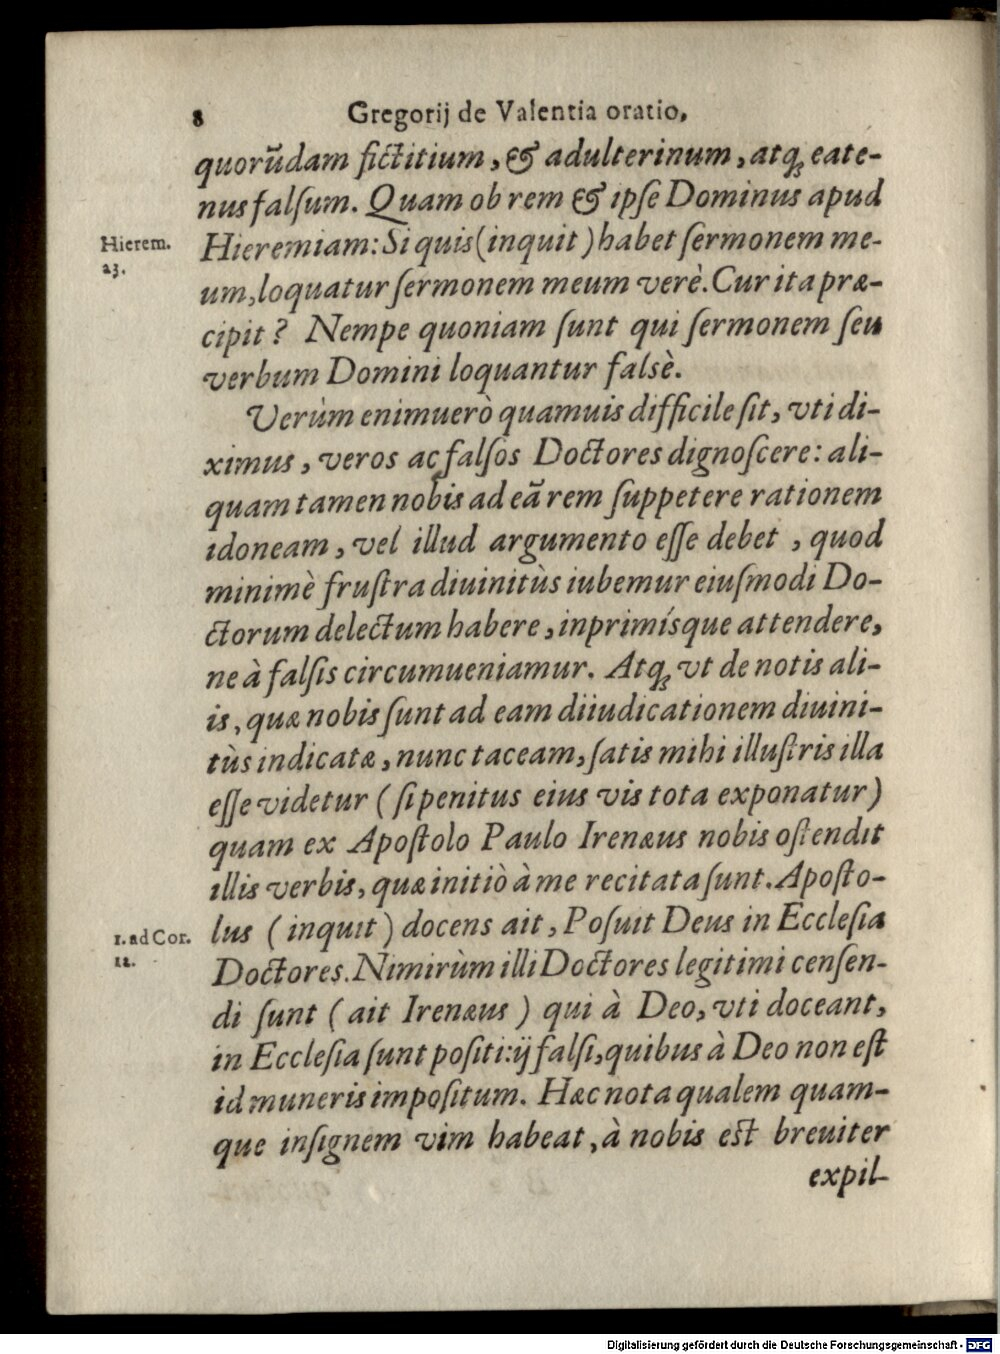 8 Gregorij de Valentia oratio,
quorũdam fictitium, & adulterinum, atq; eate-
nus falſum. Quam ob rem & ipſe Dominus apud
Hierem.
23.
Hieremiam: Si quis (inquit) habet ſermonem me-
um, loquatur ſermonem meum verè. Cur ita præ-
cipit? Nempe quoniam ſunt qui ſermonem ſeu
verbum Domini loquantur falsè.
Verùm enimuerò quamuis difficile ſit, vti di-
ximus, veros ac falſos Doctores dignoſcere: ali-
quam tamen nobis ad eã rem ſuppetere rationem
idoneam, vel illud argumento eſſe debet, quod
minimè fruſtra diuinitùs iubemur eiuſmodi Do-
ctorum delectum habere, inprimísque attendere,
ne à falſis circumueniamur. Atq; vt de notis ali-
is, quæ nobis ſunt ad eam diiudicationem diuini-
tùs indicatæ, nunc taceam, ſatis mihi illuſtris illa
eſſe videtur (ſi penitus eius vis tota exponatur)
quam ex Apoſtolo Paulo Irenæus nobis oſtendit
illis verbis, quæ initiò à me recitata ſunt. Apoſto-
1. ad Cor.
12.
lus (inquit) docens ait, Poſuit Deus in Eccleſia
Doctores. Nimirùm illi Doctores legitimi cenſen-
di ſunt (ait Irenæus) qui à Deo, vti doceant,
in Eccleſia ſunt poſiti: ij falſi, quibus à Deo non eſt
id muneris impoſitum. Hæc nota qualem quam-
que inſignem vim habeat, à nobis eſt breuiter
expil-
Digitalisierung gefördert durch die Deutsche Forschungsgemeinschaft - DFG